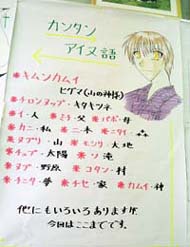 カンタン
アイヌ語
*キムンカムイ
ヒグマ(山の神様)
*チロンヌップ・キタキツネ
*イ・人 *ミチ・父 *パポ・母
*カニ・私 *ニ・木 *ニタイ・森
*ヌプリ・山 *モシリ・大地
*チュプ・太陽 *ソ・滝
*ヌプ・野原 *コタン・村
*チニタ・夢 *チセ・家 *カムイ・神
他にもいろいろありますが、
今回はここまでです。